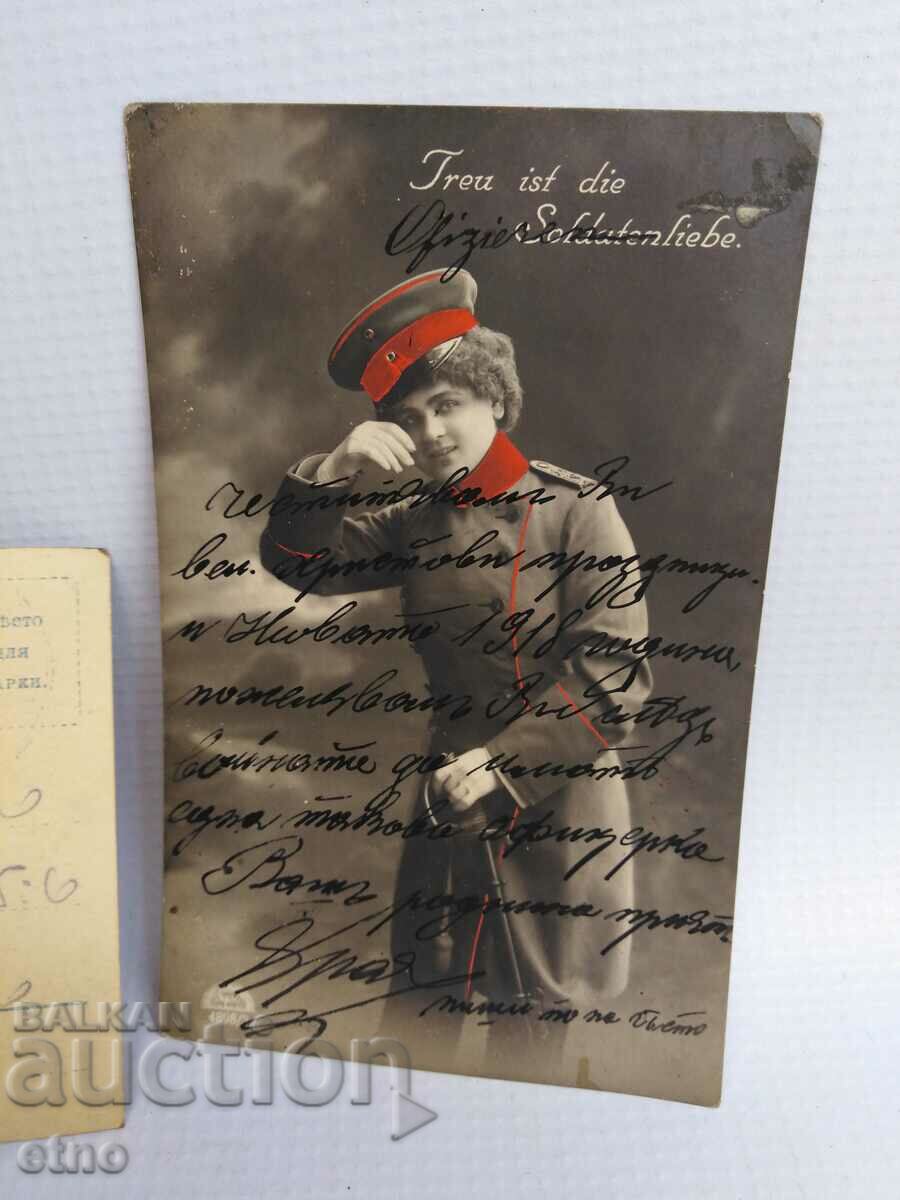 Treu ist die
Soldatenliebe.
Ofizier
Честитявамъ Ви
вел. Христови празници.
и Новата 1918 година,
пожелавамъ Ви следъ
войната да имате
една такава офицерка
Вашъ роднина прият.
пиши по на често
ѢСТО
ЛЯ
АРКИ.
BALKAN
auction
etno